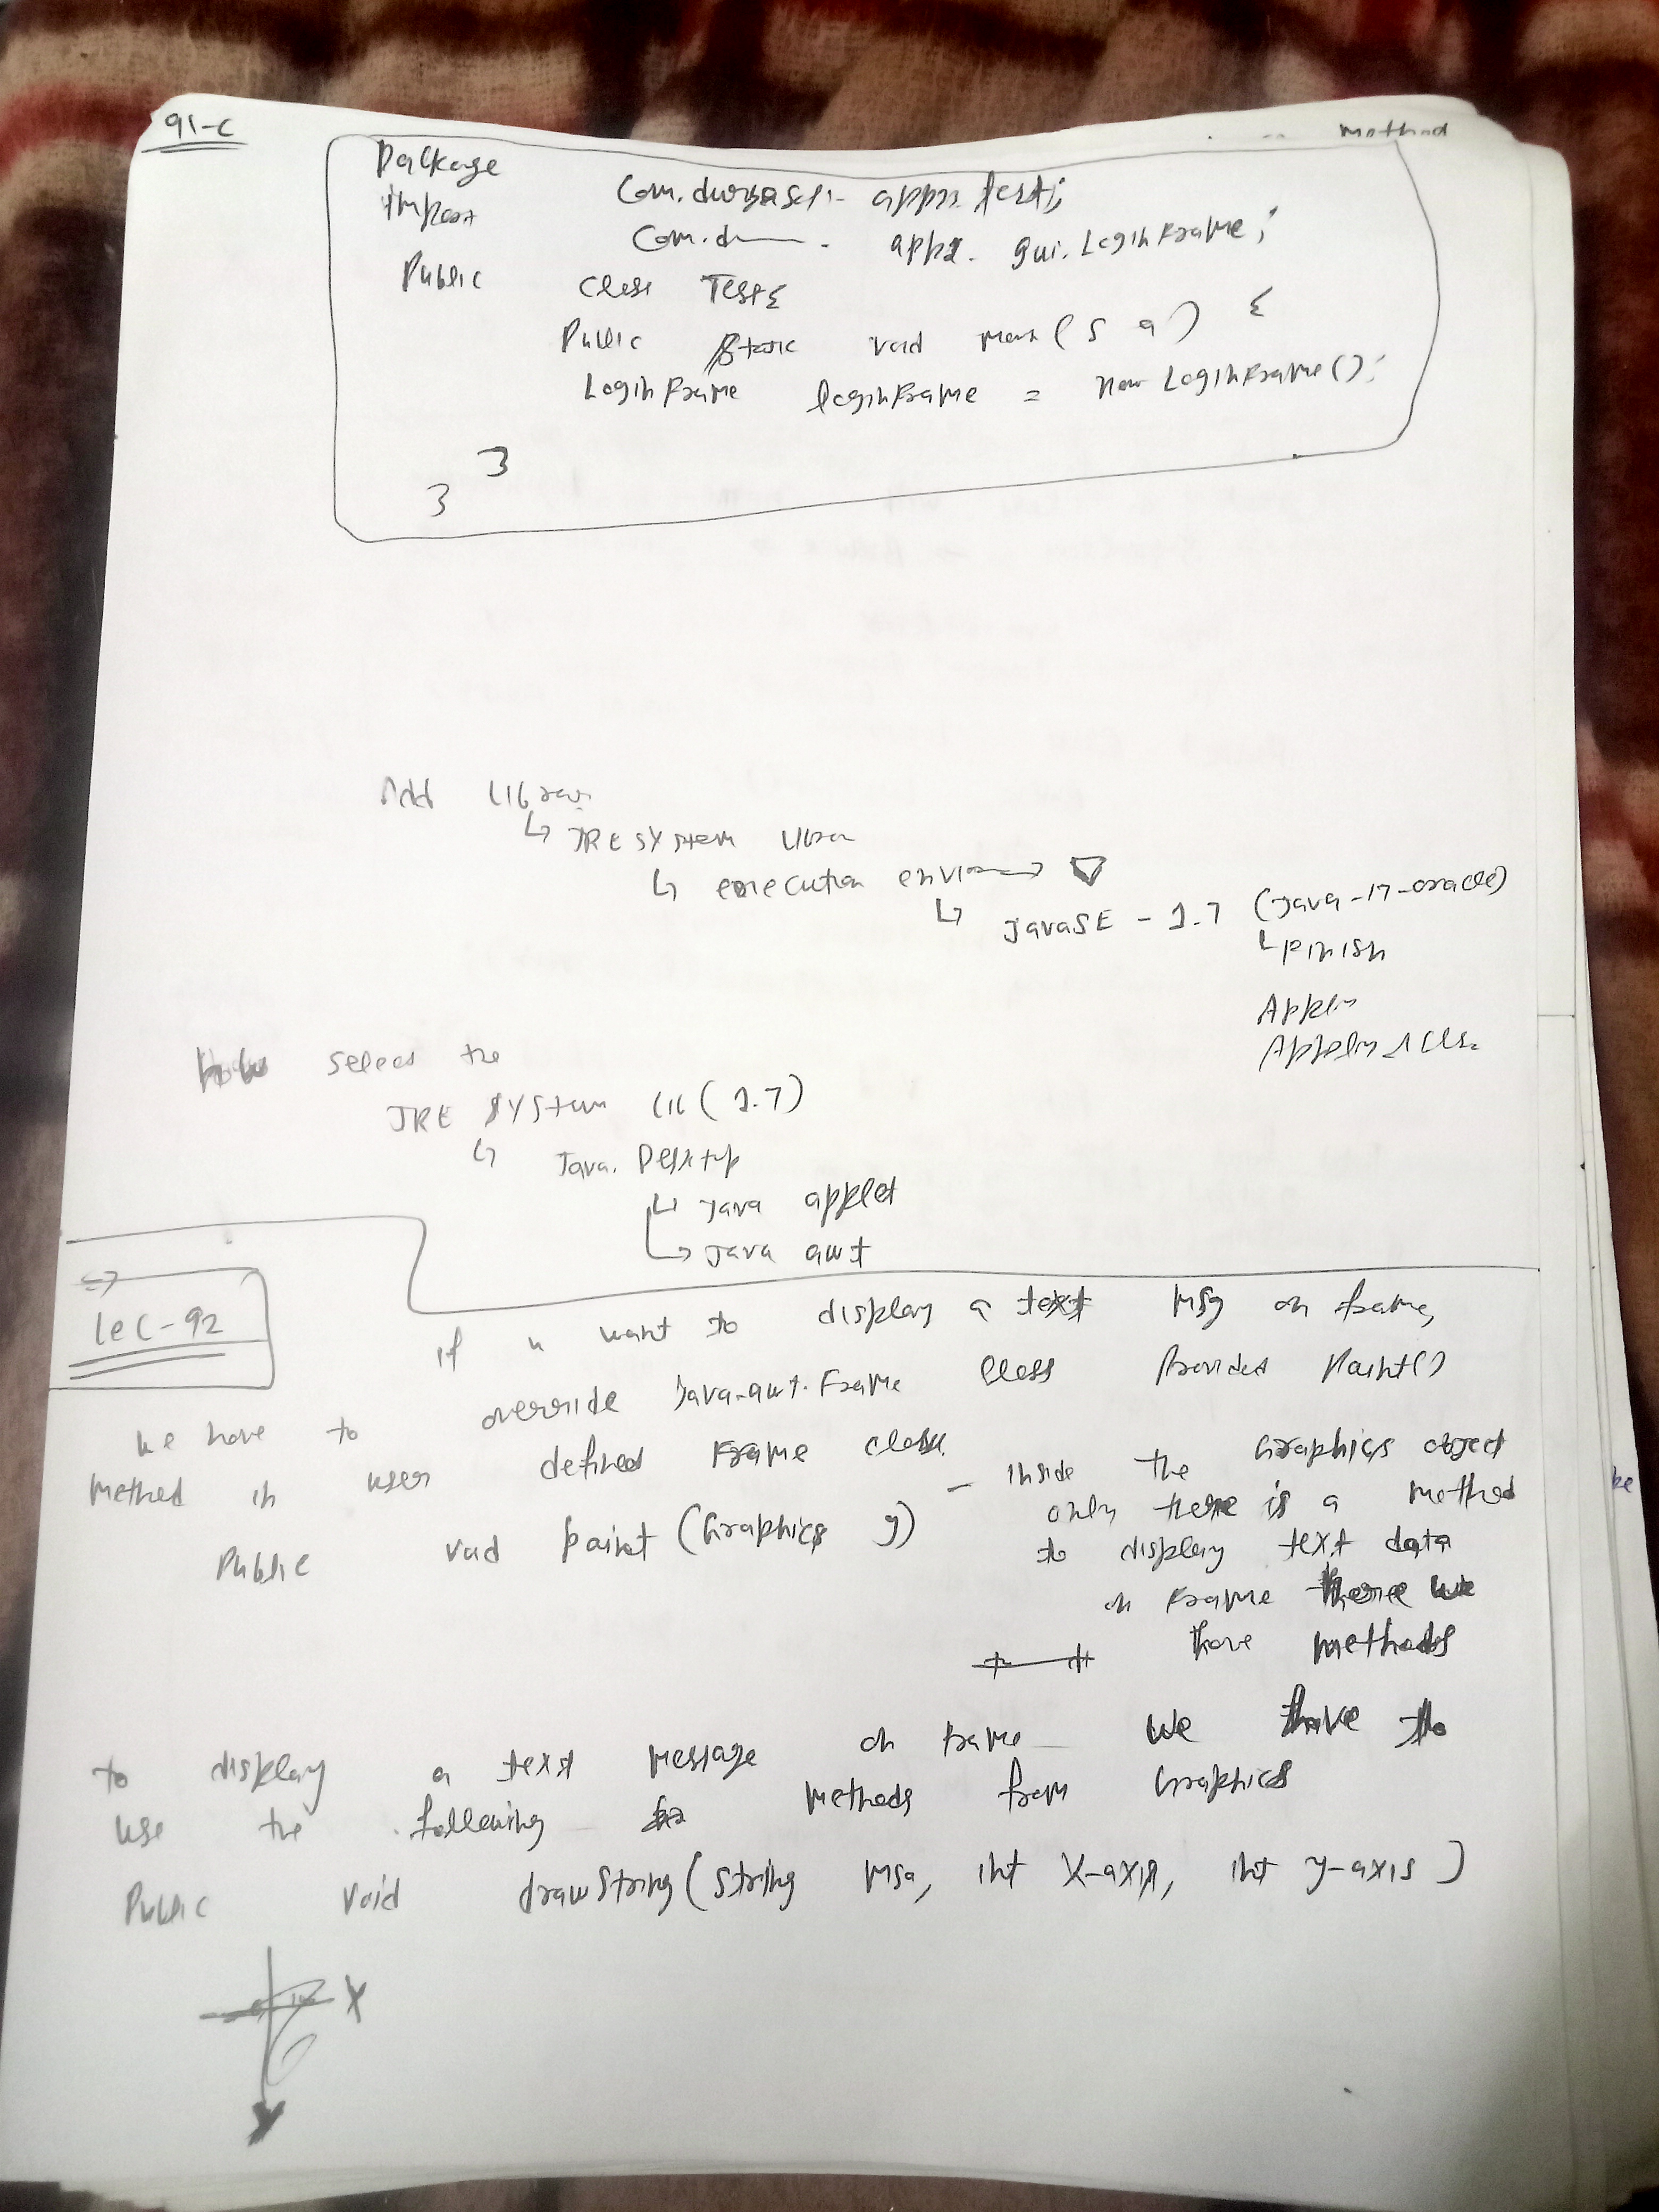 91-C
Method
Package com.durgasoft. app02.test;
import com.d——. app02. gui.LoginFrame;
Public class Test {
Public static void main(S a) {
LoginFrame loginFrame = new LoginFrame();
}
}
Add Library
↳ JRE System
↳ execution → ▽
↳ JavaSE - 1.7 (java-17-oracle)
↳ Finish
Apply
Apply
select the
JRE System Lib (1.7)
↳ Java. Desktop
↳ Java applet
↳ Java awt
Lec-92
if u want to display a text msg on frame,
we have to override java.awt.Frame class provided paint()
method in user defined Frame class
Public void paint (Graphics g) - inside the Graphics object
only there is a method
to display text data
on Frame there we
have methods
to display a text message on frame we have to
use the following methods from Graphics
Public void drawString(String msg, int X-axis, int y-axis)
X
y